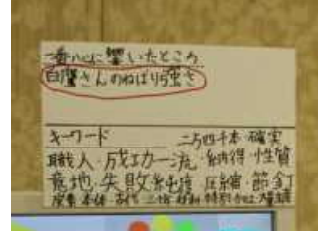 一番心に響いたところ
白鷹さんのねばり強さ
キーワード 二万四千本 確実
職人・成功・一流・納得・性質
意地・失敗 純度 圧縮・節 釘
炭素 本体 古代 三倍 特別